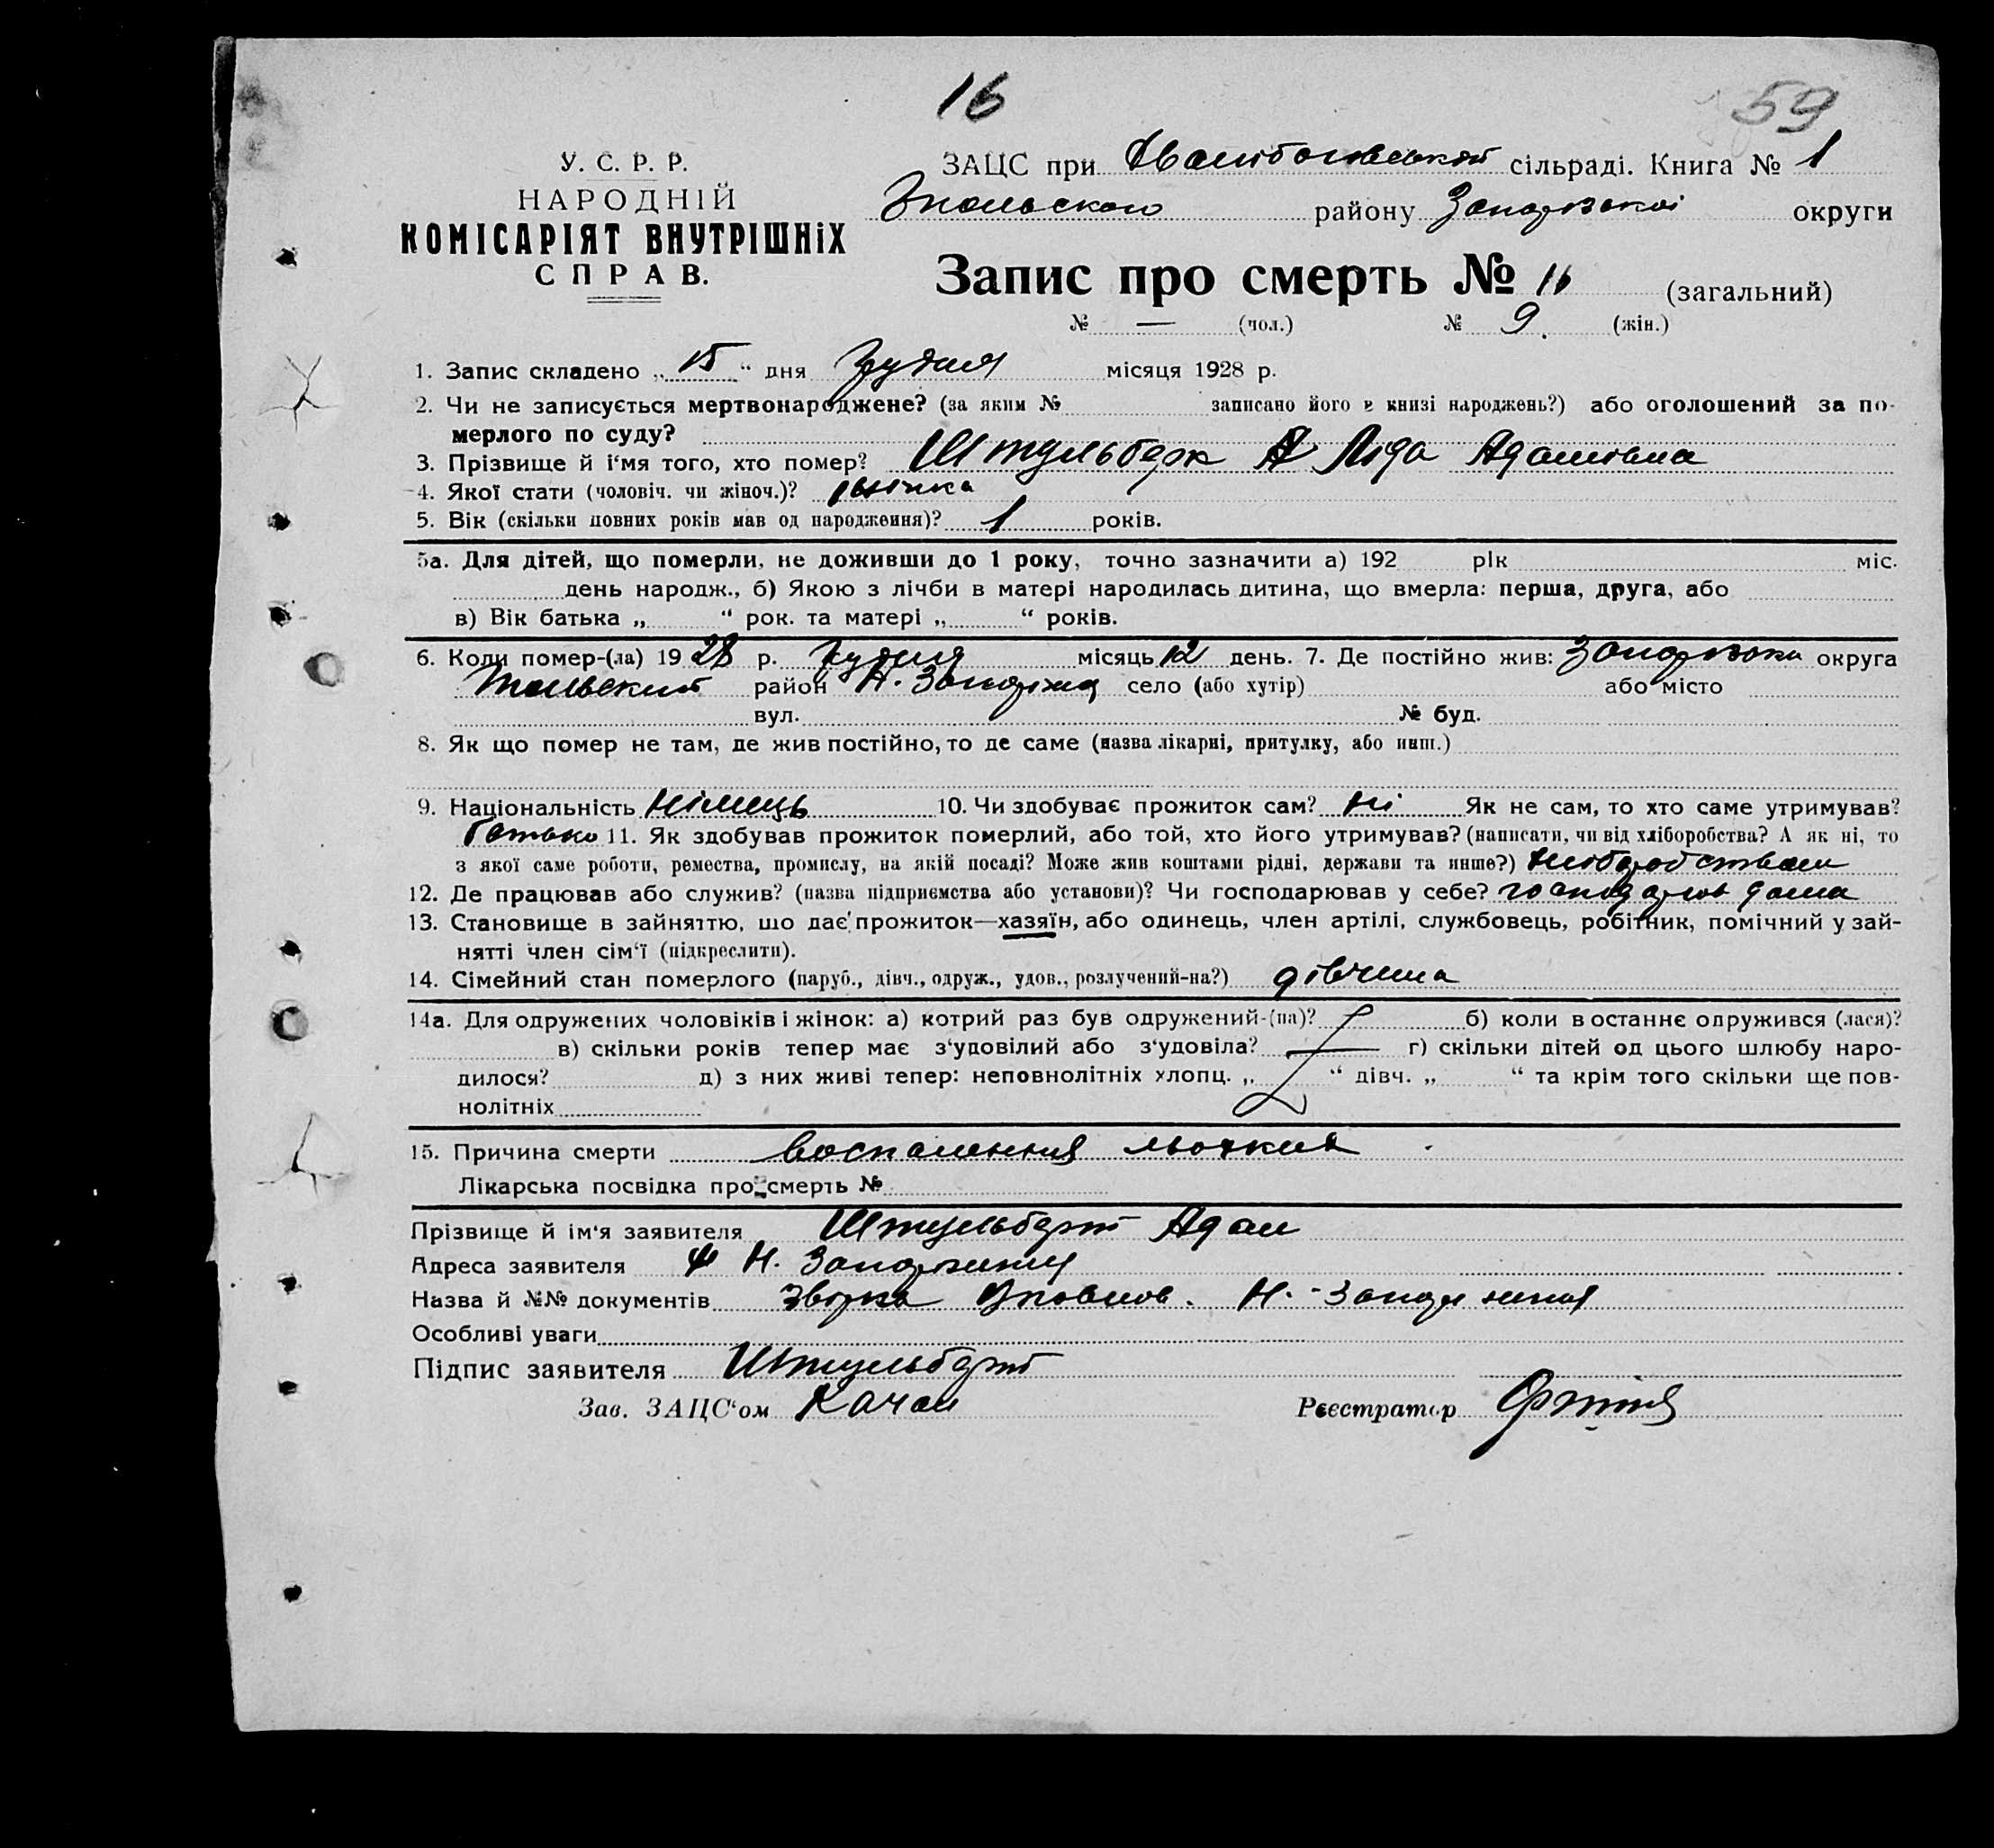 16
59
У. С. Р. Р.
НАРОДНІЙ
КОМІСАРІЯТ ВНУТРІШНіХ
СПРАВ.
ЗАЦС при сільраді. Книга № 1
району Запорізької округи
Запис про смерть № 16 (загальний)
№ — (чол.) № 9. (жін.)
1. Запис складено „ 15 “ дня Грудня місяця 1928 р.
2. Чи не записується мертвонароджене? (за яким № записано його в книзі народжень?) або оголошений за по-
мерлого по суду?
3. Прізвище й і'мя того, хто помер? Штульберк А Ліда Адамівна
4. Якої стати (чоловіч. чи жіноч.)? жінка
5. Вік (скільки повних років мав од народження)? 1 років.
5а. Для дітей, що померли, не доживши до 1 року, точно зазначити а) 192 рік міс.
день народж., б) Якою з лічби в матері народилась дитина, що вмерла: перша, друга, або
в) Вік батька „ “ рок. та матері „ “ років.
6. Коли помер-(ла) 1928 р. Грудня місяць 12 день. 7. Де постійно жив: округа
район Н. Запоріжя село (або хутір) або місто
вул. № буд.
8. Як що помер не там, де жив постійно, то де саме (назва лікарні, притулку, або инш.)
9. Національність Німець 10. Чи здобуває прожиток сам? Ні Як не сам, то хто саме утримував?
Батько 11. Як здобував прожиток померлий, або той, хто його утримував? (написати, чи від хліборобства? А як ні, то
з якої саме роботи, ремества, промислу, на якій посаді? Може жив коштами рідні, держави та инше?) Хлібробством
12. Де працював або служив? (назва підприємства або установи)? Чи господарював у себе? дома
13. Становище в зайняттю, що дає прожиток—хазяїн, або одинець, член артілі, службовець, робітник, помічний у зай-
нятті член сім'ї (підкреслити).
14. Сімейний стан померлого (паруб., дівч., одруж., удов., розлучений-на?) дівчина
14а. Для одружених чоловіків і жінок: а) котрий раз був одружений-(на)? б) коли в останнє одружився (лася)?
в) скільки років тепер має з'удовілий або з'удовіла? г) скільки дітей од цього шлюбу наро-
дилося? д) з них живі тепер: неповнолітніх хлопц. „ “ дівч. „ “ та крім того скільки ще пов-
нолітніх
15. Причина смерти воспаления льочкия
Лікарська посвідка про смерть №
Прізвище й ім'я заявителя Штульберт Адам
Адреса заявителя Н.
Назва й №№ документів Н.-
Особливі уваги
Підпис заявителя Штульберт
Зав. ЗАЦС'ом Качан Реєстратор